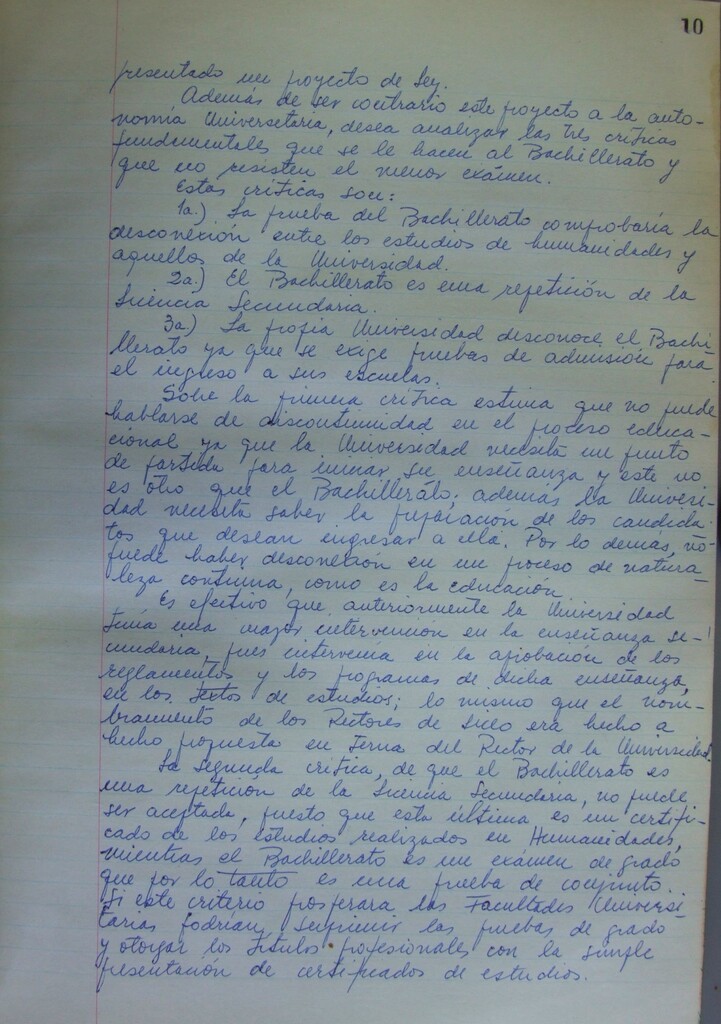 10
presentado un proyecto de Ley.
Además de ser contrario este proyecto a la auto-
nomía Universitaria, desea analizar las tres críticas
fundamentales que se le hacen al Bachillerato y
que no resisten el menor exámen.
Estas críticas son:
1a.) La prueba del Bachillerato comprobaría la
desconexión entre los estudios de humanidades y
aquellos de la Universidad.
2a.) El Bachillerato es una repetición de la
Licencia Secundaria.
3a) La propia Universidad desconoce el Bachi-
llerato ya que se exige pruebas de admisión para
el ingreso a sus escuelas.
Sobre la primera crítica estima que no puede
hablarse de discontinuidad en el proceso educa-
cional ya que la Universidad necesita un punto
de partida para iniciar su enseñanza y este no
es otro que el Bachillerato; además la Universi-
dad necesita saber la preparación de los candida-
tos que desean ingresar a ella. Por lo demás, no
puede haber desconexión en un proceso de natura-
leza continua, como es la educación.
Es efectivo que anteriormente la Universidad
tenía una mayor intervención en la enseñanza se-
cundaria, pues intervenía en la aprobación de los
reglamentos y los programas de dicha enseñanza,
en los textos de estudios; lo mismo que el nom-
bramiento de los Rectores de Liceo era hecho a
hecho propuesta en terna del Rector de la Universidad.
La segunda crítica, de que el Bachillerato es
una repetición de la Licencia Secundaria, no puede
ser aceptada, puesto que esta última es un certifi-
cado de los estudios realizados en Humanidades,
mientras el Bachillerato es un exámen de grado
que por lo tanto es una prueba de conjunto.
Si este criterio prosperara las Facultades Universi-
tarias podrían suprimir las pruebas de grado
y otorgar los títulos profesionales con la simple
presentación de certificados de estudios.